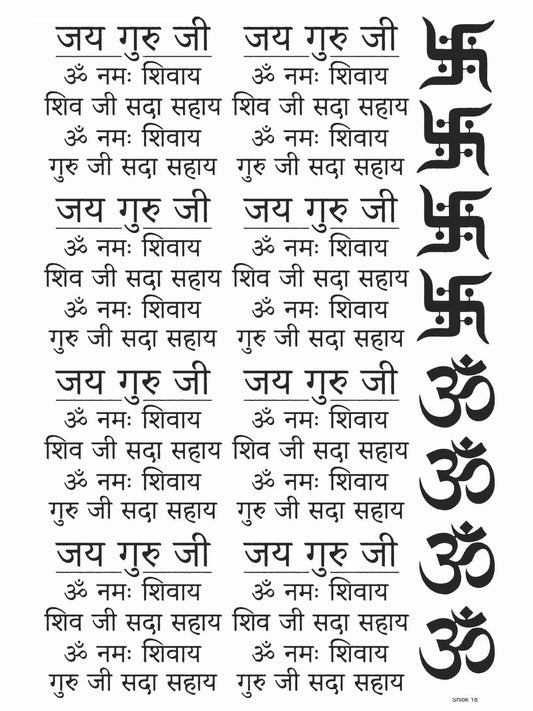 जय गुरु जी
ॐ नमः शिवाय
शिव जी सदा सहाय
ॐ नमः शिवाय
गुरु जी सदा सहाय
जय गुरु जी
ॐ नमः शिवाय
शिव जी सदा सहाय
ॐ नमः शिवाय
गुरु जी सदा सहाय
जय गुरु जी
ॐ नमः शिवाय
शिव जी सदा सहाय
ॐ नमः शिवाय
गुरु जी सदा सहाय
जय गुरु जी
ॐ नमः शिवाय
शिव जी सदा सहाय
ॐ नमः शिवाय
गुरु जी सदा सहाय
जय गुरु जी
ॐ नमः शिवाय
शिव जी सदा सहाय
ॐ नमः शिवाय
गुरु जी सदा सहाय
जय गुरु जी
ॐ नमः शिवाय
शिव जी सदा सहाय
ॐ नमः शिवाय
गुरु जी सदा सहाय
जय गुरु जी
ॐ नमः शिवाय
शिव जी सदा सहाय
ॐ नमः शिवाय
गुरु जी सदा सहाय
जय गुरु जी
ॐ नमः शिवाय
शिव जी सदा सहाय
ॐ नमः शिवाय
गुरु जी सदा सहाय
ॐ
ॐ
ॐ
ॐ
Shlok 18